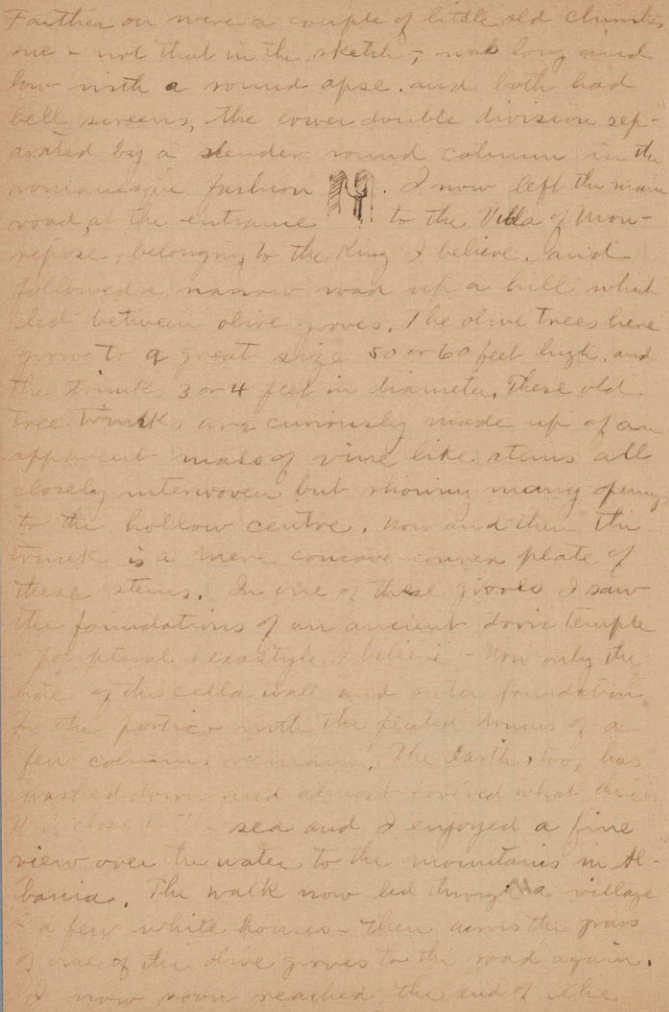 Farther on were a couple of little old churches
one - not that in the sketch -, was long and
low with a round apse. and both had
bell screens, the lower double division sep-
arated by a slender round column in the
romanesque fashion . I now left the main
road, at the entrance to the Villa of Mon-
repose, belonging to the King I believe, and
followed a narrow road up a hill what
led between olive groves. The olive trees here
grow to a great size 50 or 60 feet high, and
the trunks 3 or 4 feet in diameter. These old
tree trunks are curiously made up of an
apparent mass of vine like stems all
closely interwoven but showing many opening
to the hollow centre. Now and then the
trunk is a mere concave-convex plate of
these stems. In one of these groves I saw
the foundations of an ancient doric temple
- peripteral hexastyle I believe - Now only the
line of the cella wall and outer foundation
for the portico with the fluted drums of a
few columns remains. The Earth, too, has
washed down and almost covered what there
is close sea and I enjoyed a fine
view over the water to the mountains in Al-
bania. The walk now led through a village
- a few white houses - then across the grass
of one of the olive groves to the road again.
I now soon reached the end of the